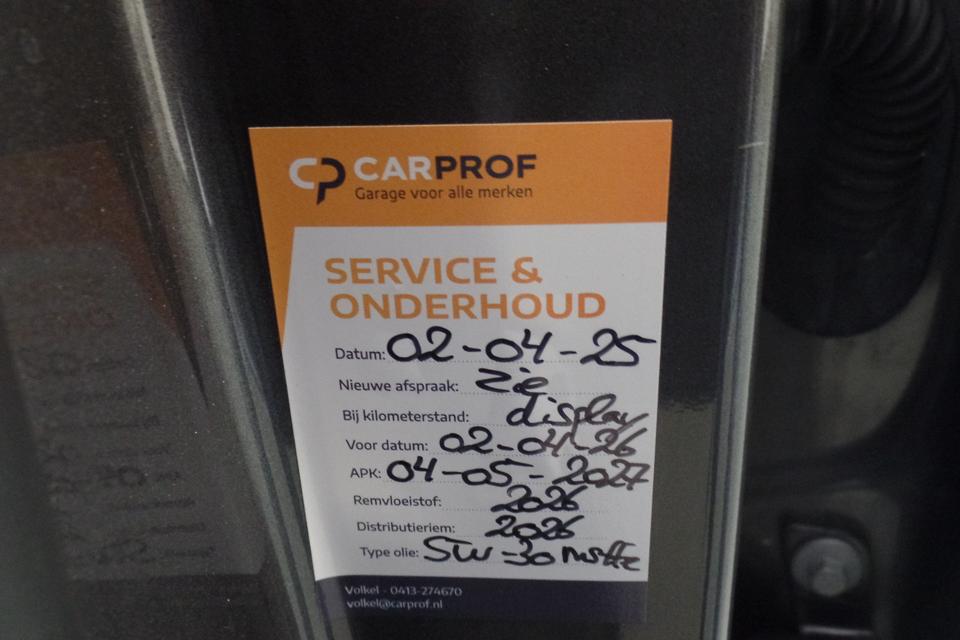 CP CARPROF
Garage voor alle merken
SERVICE &
ONDERHOUD
Datum: 02-04-25
Nieuwe afspraak: Zie
Bij kilometerstand: display
Voor datum: 02-04-26
APK: 04-05-2027
Remvloeistof: 2026
Distributieriem: 2026
Type olie: 5W-30
Volkel - 0413-274670
volkel@carprof.nl